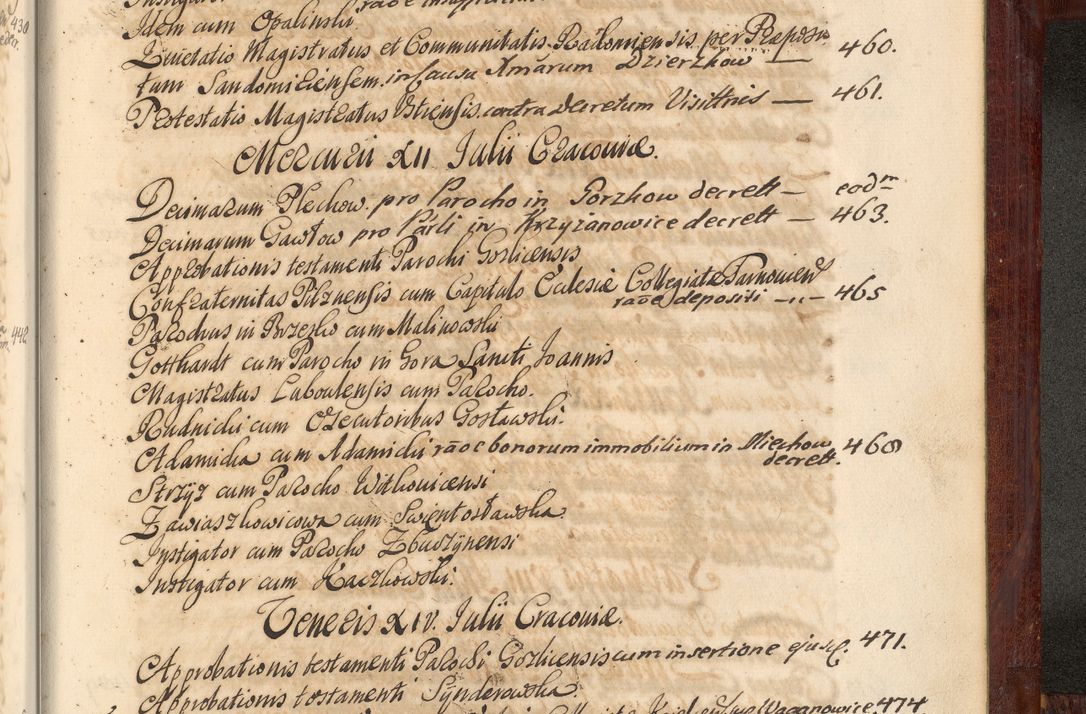 Idem cum Opalinski
Quietatio Magistratus et Communitatis Radomiensis per Præposi 460.
tum Sandomiriensem in Causa Xmarum Dzierzkow —
Protestatio Magistratus contra Decretum — 461.
Mercurii XII Julii Cracoviæ.
Decimarum Plechow. pro Parocho in Gorzkow decrett — eodm
Decimarum Gawłow pro in Krzyżanowice decrett — 463.
Approbationis testamenti Parochi Gorlicensis
Confraternitas Pilznensis cum Capitulo Ecclesiæ Collegiatæ Tarnovien
raõe depositi — 465
Parochus in Brzesko cum Malinowski
Gotthardt cum Parocho in Gora Sancti Joannis
Magistratus cum Parocho.
Rudnicki cum Executoribus Gostawski.
Adamicka cum Adamicki raõe bonorum immobilium in Miechow 468
decrett.
Strzyz cum Parocho Witkovicensi
Zawiaszkowicowa cum Swentosławska
Instigator cum Parocho Zbuczynensi
Instigator cum Kaczkowski.
Veneris XIV. Julii Cracoviæ.
Approbationis testamenti Parochi Gorlicensis cum insertione ejusd. 471.
Approbationis testamenti Synderowska
Waganowice 474
430
442